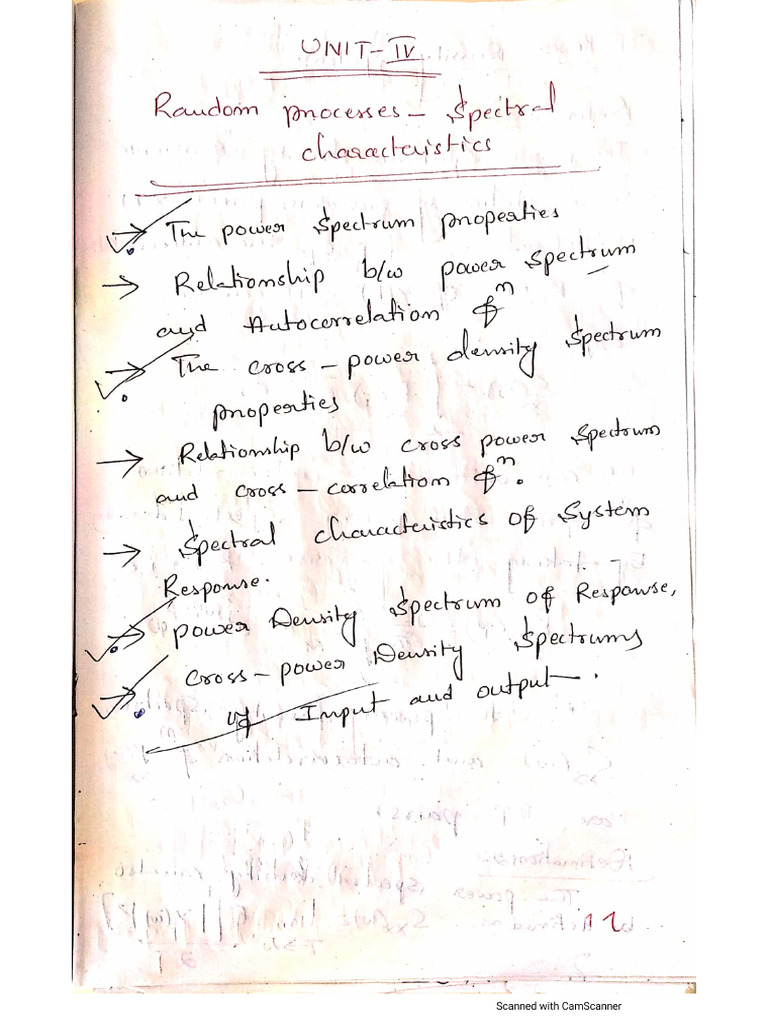 UNIT-IV
Random processes - Spectral
characteristics
→ The power Spectrum properties
→ Relationship b/w power spectrum
and Autocorrelation fⁿ
→ The cross-power density Spectrum
properties
→ Relationship b/w cross power Spectrum
and cross-correlation fⁿ.
→ Spectral characteristics of System
Response.
→ power Density Spectrum of Response,
→ cross-power Density Spectrums
of Input and output.
Scanned with CamScanner